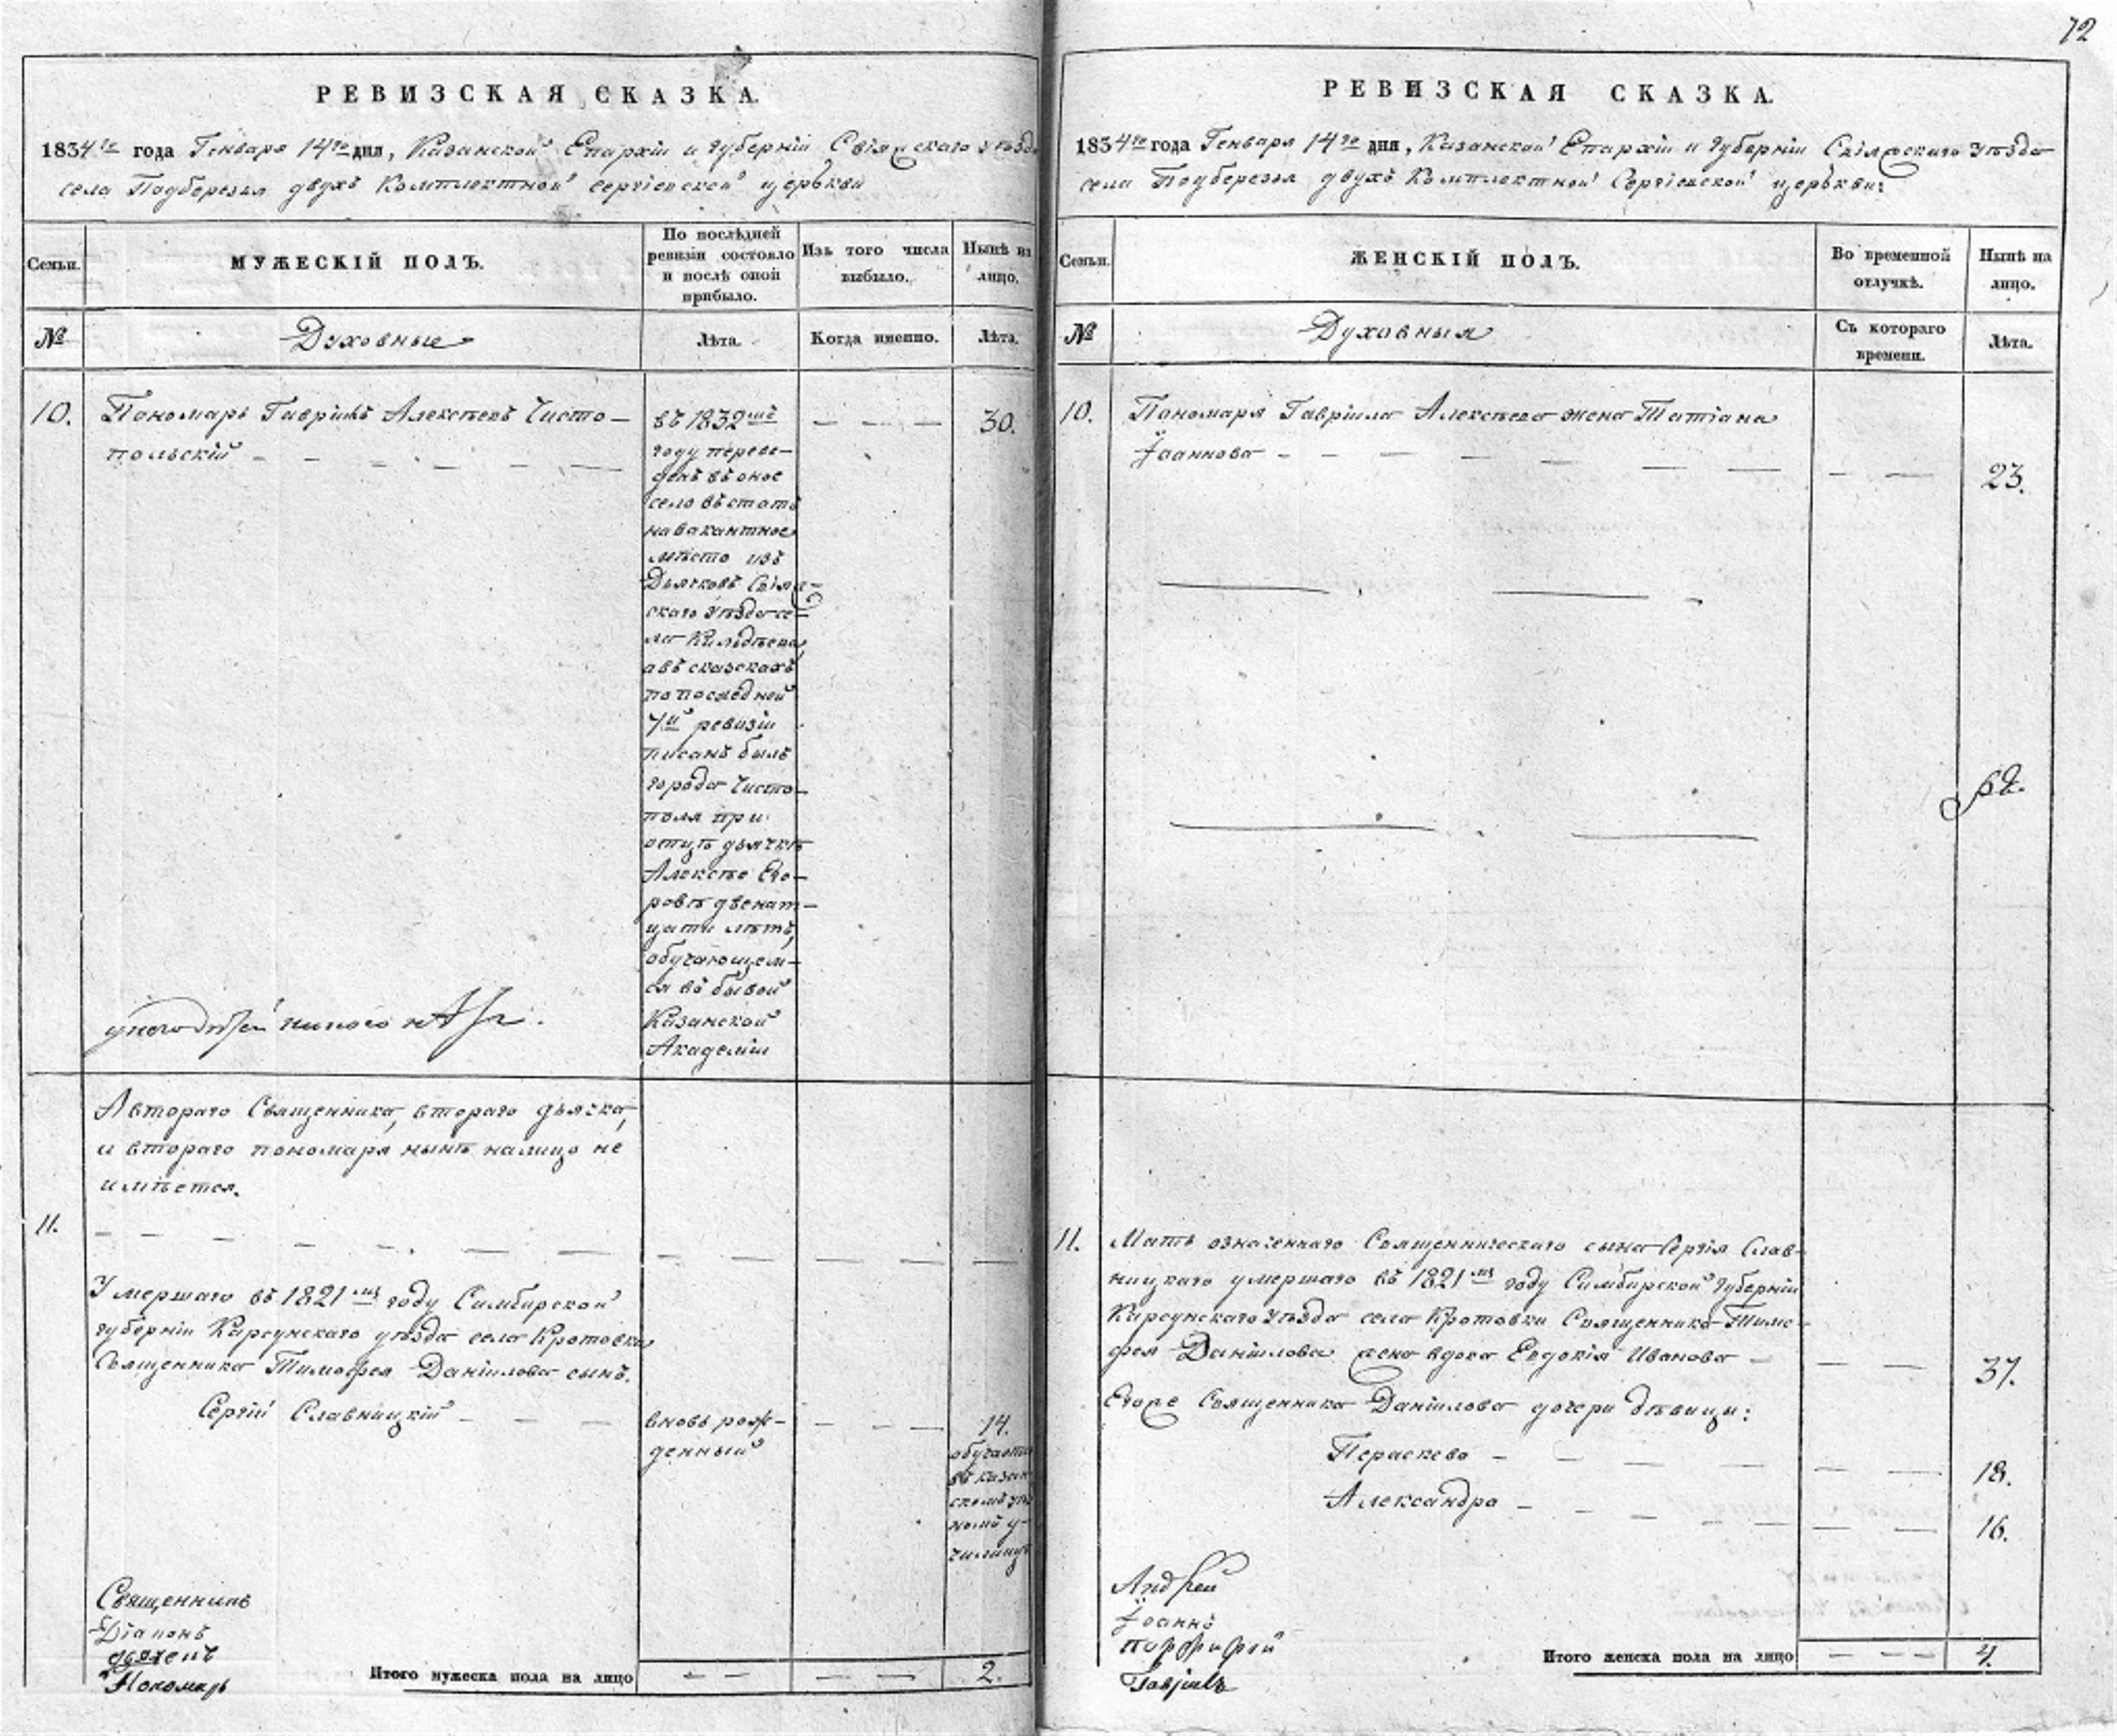 РЕВИЗСКАЯ СКАЗКА.
1834го года Генваря 14го дня, Казанской Епархіи и губерніи Свіяжскаго уѣзда
села Подберезья двухъ Комплектной сергіевской церкви
Семьи.
МУЖЕСКІЙ ПОЛЪ.
По послѣдней
ревизіи состояло
и послѣ оной
прибыло.
Изъ того числа
выбыло.
Нынѣ на
лицо.
№
Духовные
Лѣта.
Когда именно.
Лѣта.
10.
Пономарь Гавріилъ Алексѣевъ Чисто-
польскій
въ 1832мъ
году переве-
денъ въ оное
село въ статъ
на вакантное
мѣсто изъ
Дьячковъ Свіяж-
скаго уѣзда се-
ла Кильдѣева,
а въ сказскахъ
по последней
7й ревизіи
писанъ былъ
города Чисто-
поля при
отцѣ дьячкѣ
Алексѣе Его-
ровѣ двенат-
цати лѣтъ,
обучающем-
ся въ бывой
Казанской
Академіи
30.
у него дѣтей никого нѣтъ.
А втораго Священника, втораго дьячка,
и втораго пономаря нынѣ налицо не
имѣется.
11.
Умершаго въ 1821мъ году Симбирской
губерніи Карсунскаго уѣзда села Кротовки
Священника Тимофея Данілова сынъ.
Сергій Славницкій
вновь рож-
денный
14.
обучается
въ казан-
скомъ уѣз-
номъ у-
чилищѣ
Священникъ
Діаконъ
дьячекъ
Пономарь
Итого мужеска пола на лицо
2.
72
РЕВИЗСКАЯ СКАЗКА.
1834го года Генваря 14го дня, Казанской Епархіи и губерніи Свіяжскаго уѣзда
села Подберезья двухъ Комплектной Сергіевской церькви:
Семьи.
ЖЕНСКІЙ ПОЛЪ.
Во временной
отлучкѣ.
Нынѣ на
лицо.
№
Духовныя
Съ котораго
времени.
Лѣта.
10.
Пономаря Гавріила Алексѣева жена Татіана
Іоаннова
23.
11.
Мать означеннаго Священническаго сына Сергія Слав-
ницкаго умершаго въ 1821мъ году Симбирской губерніи
Карсунскаго уѣзда села Кротовки Священника Тимо-
фея Данілова жена вдова Евдокія Иванова
37.
Егоже Священника Данілова дочери дѣвицы:
Пераскева
18.
Александра
16.
Андрей
Іоаннъ
Порфирій
Гавріилъ
Итого женска пола на лицо
4.